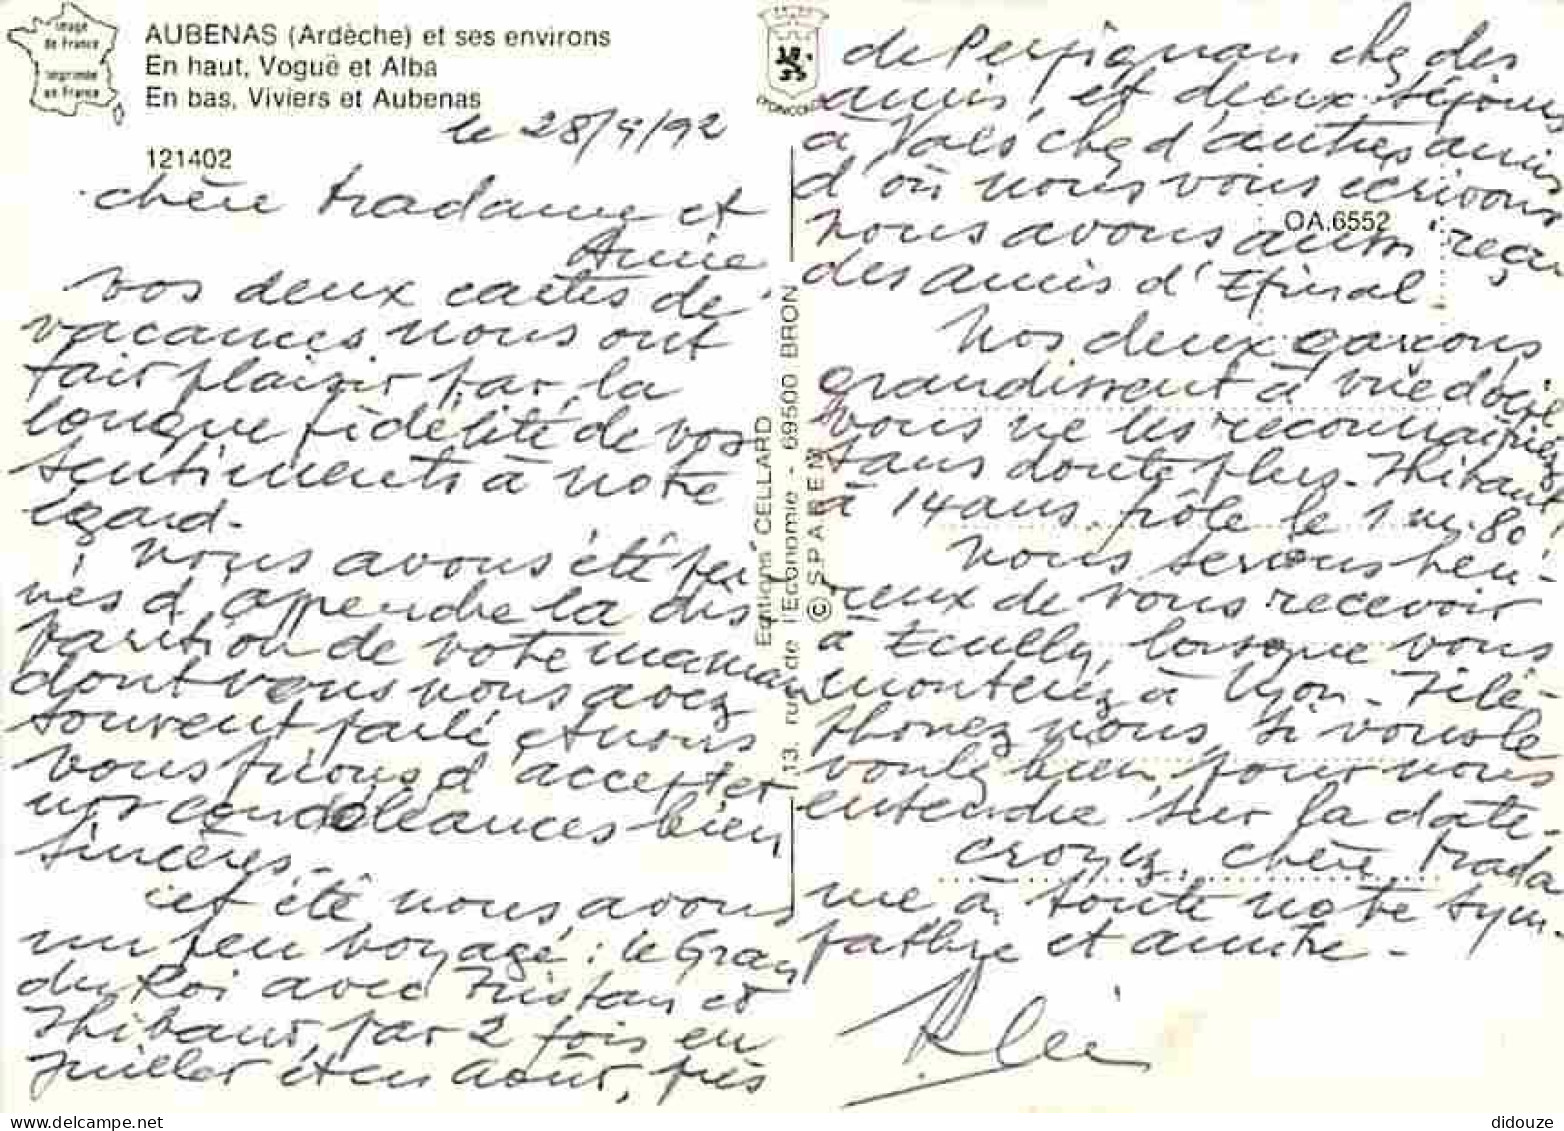 Image
de France
Imprimée
en France
AUBENAS (Ardèche) et ses environs
En haut, Voguë et Alba
En bas, Viviers et Aubenas
le 28/9/92
121402
chère Madame et
Annie
Vos deux cartes de
vacances nous ont
fait plaisir par la
longue fidélité de vos
sentiments à notre
égard.
Nous avons été pei
nés d'apprendre la dis
parition de votre maman
dont vous nous avez
souvent parlé et nous
vous prions d'accepter
nos condoléances bien
sincères.
cet été nous avons
un peu voyagé : le Grau
du Roi avec Tristan et
Thibaut par 2 fois en
juillet et en août, près
Editions CELLARD
13, rue de l'Economie - 69500 BRON
© SPADEM
de Perpignan chez des
amis, et deux séjours
à Vals chez d'autres amis
d'où nous vous écrivons
OA.6552
nous avons aussi reçu
des amis d'Epinal.
Nos deux garçons
grandissent à vue d'œil
vous ne les reconnaîtriez
sans doute plus. Thibaut
à 14 ans frôle le 1m.80!
Nous serions heu-
reux de vous recevoir
à Ecully, lorsque vous
monterez à Lyon. Télé-
phonez nous, si vous le
voulez bien, pour nous
entendre sur la date.
croyez, chère Mada
me à toute notre sym-
pathie et amitié.
didouze